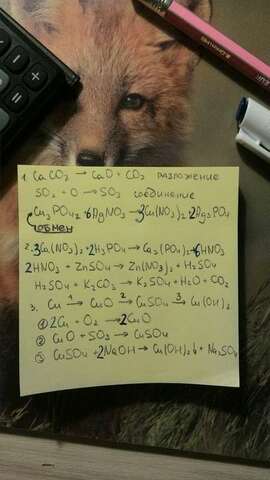 1. CaCO₃ → CaO + CO₂ разложение
SO₂ + O → SO₃ соединение
Cu₃PO₄₂ + 6AgNO₃ → 3Cu(NO₃)₂ + 2Ag₃PO₄
обмен
2. 3Cu(NO₃)₂ + 2H₃PO₄ → Cu₃(PO₄)₂ + 6HNO₃
2HNO₃ + ZnSO₄ → Zn(NO₃)₂ + H₂SO₄
H₂SO₄ + K₂CO₃ → K₂SO₄ + H₂O + CO₂
3. Cu 1→ CuO 2→ CuSO₄ 3→ Cu(OH)₂
① 2Cu + O₂ → 2CuO
② CuO + SO₃ → CuSO₄
③ CuSO₄ + 2NaOH → Cu(OH)₂↓ + Na₂SO₄